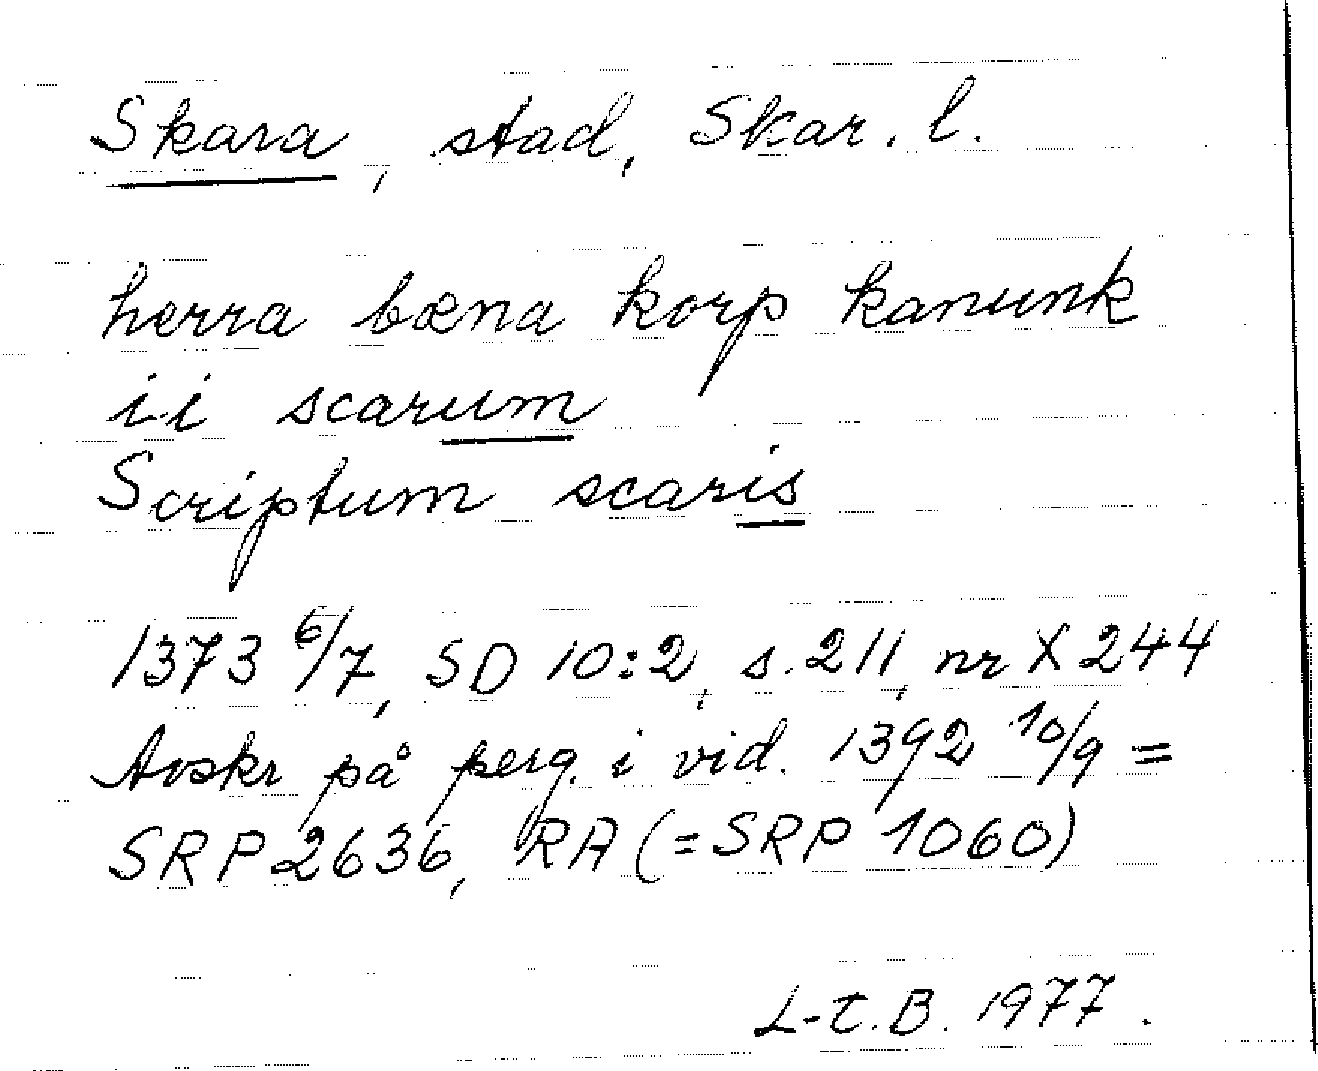 Skara, stad, Skar. l.
herra bœna korp kanunk
i i scarum
Scriptum scaris
1373 6/7, SD 10:2, s. 211, nr X 244
Avskr på perg. i vid. 1392 10/9 =
SRP 2636, RA (= SRP 1060)
L-t. B. 1977.